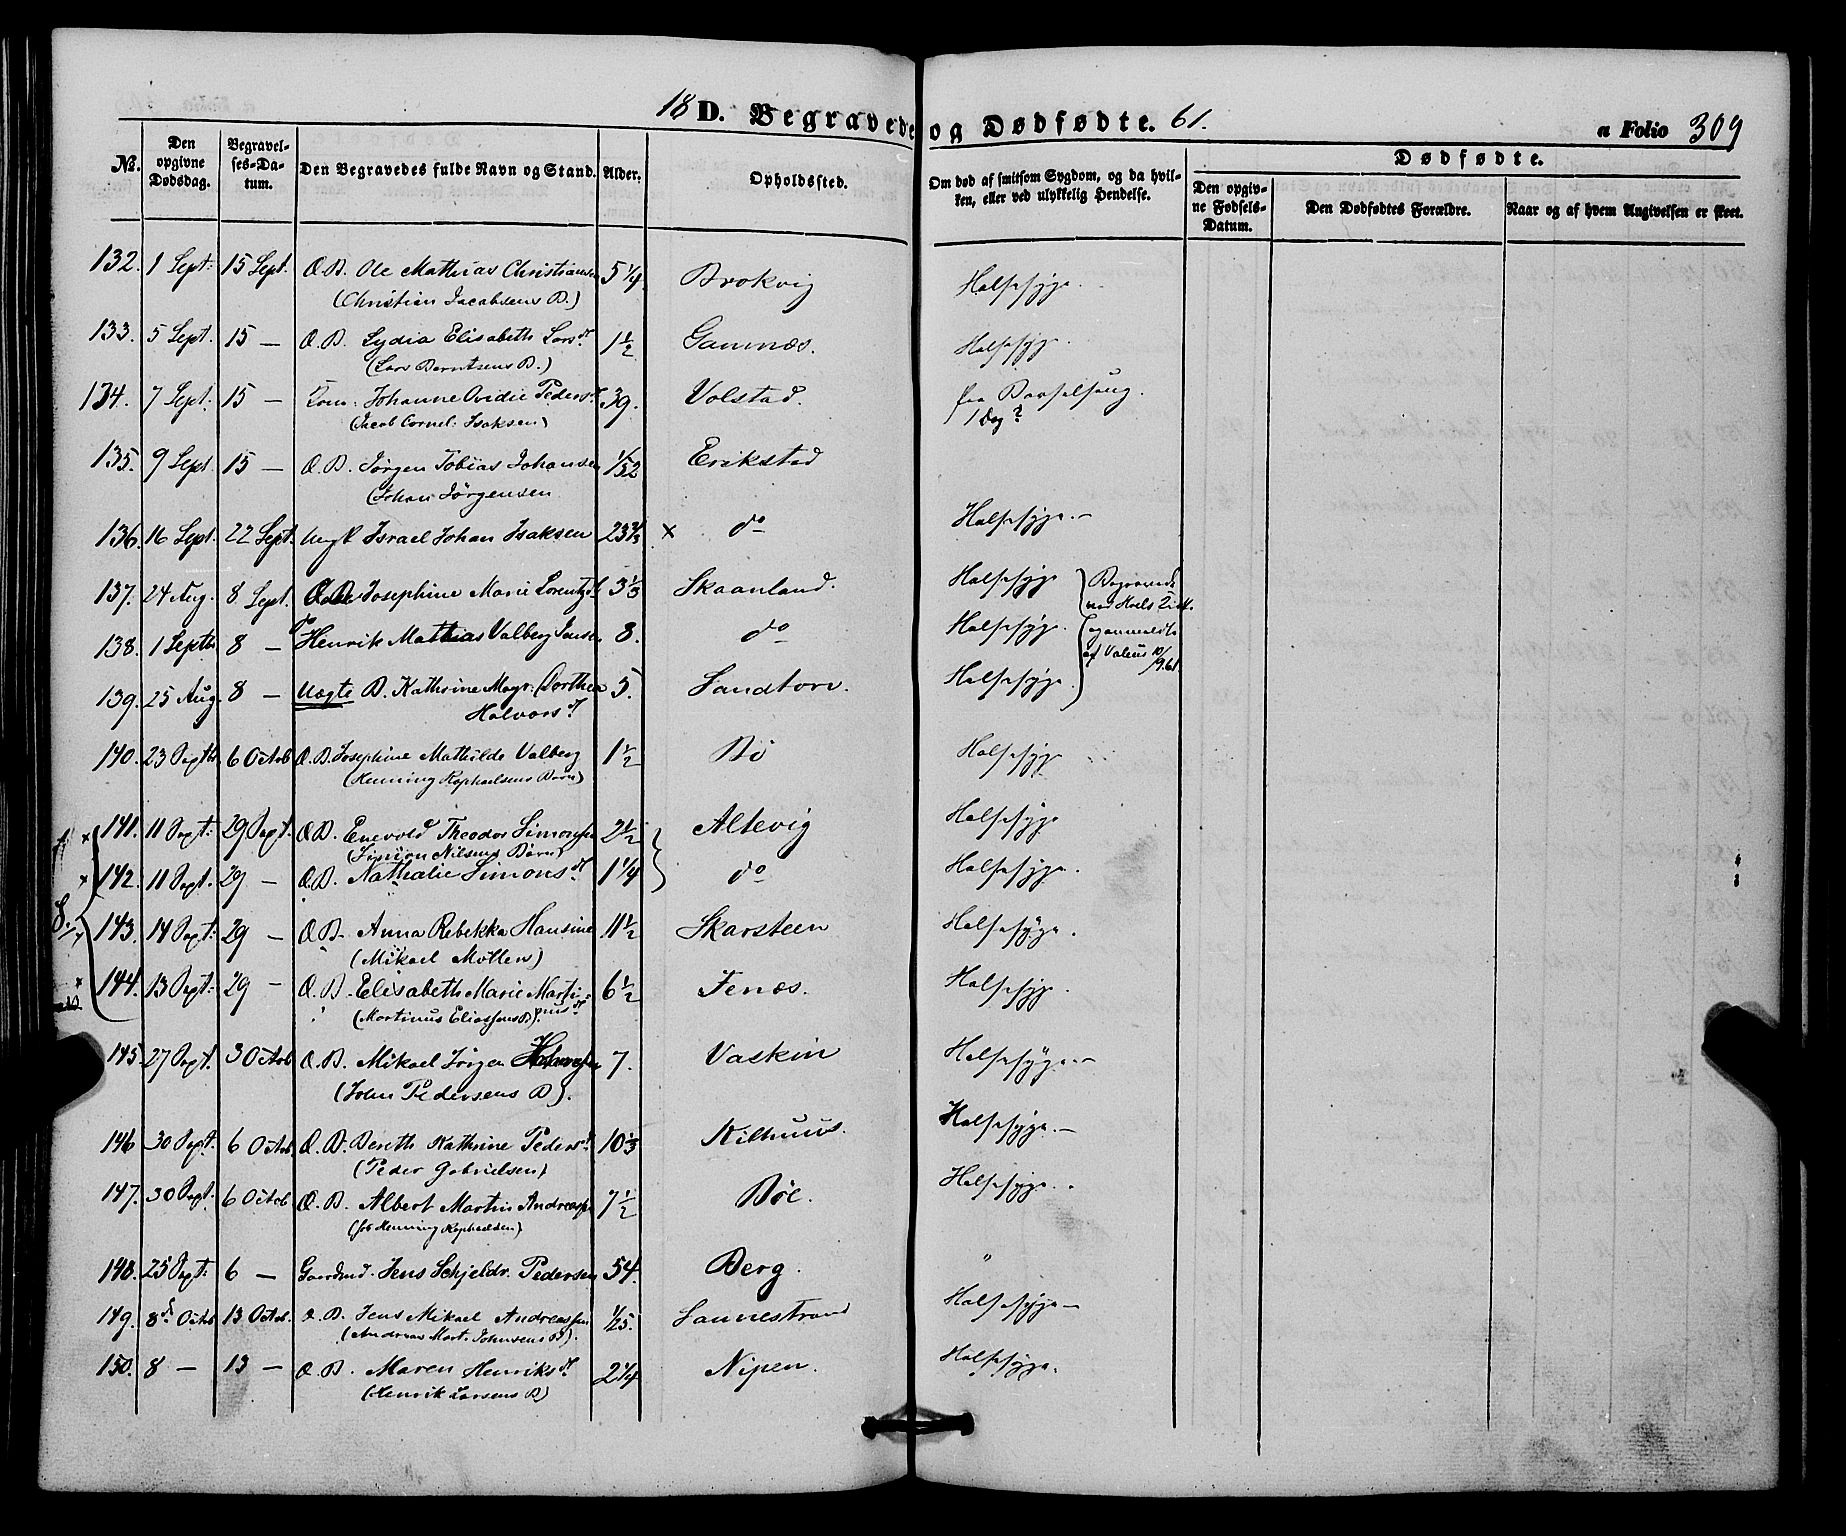 18 D. Begravede og Dødfødte. 61.
a Folio 309
No. Den opgivne Dødsdag. Begravelses-Datum. Den Begravedes fulde Navn og Stand. Alder. Opholdssted. Om død af smitsom Sygdom, og da hvilken, eller ved ulykkelig Hendelse.
Dødfødte.
Den opgivne Fødsels-Datum. Den Dødfødtes Forældre. Naar og af hvem Angivelsen er skeet.
132. 1 Sept: 15 Sept. Æ.B. Ole Mathias Christiansen 5 1/4 Brokvig Halssyge.
(Christian Jacobsens B.)
133. 5 Sept. 15 — Æ.B. Lydia Elisabeth Larsd. 1 1/2 Gamnæs. Halssyge.
(Lars Berntsens B.)
134. 7 Sept. 15 — Kone. Johanne Ovidie Pedersd. 39. Volstad. fra Barselseng.
(Jacob Cornel. Isaksen) 1 Dag?
135. 9 Sept. 15 — Æ.B. Jørgen Tobias Johansen 1/52 Erikstad
(Johan Jørgensen
136. 16 Sept. 22 Sept. Ungk Israel Johan Isaksen 23 3/3 x do Halssyge. —
137. 24 Aug. 8 Sept. Josephine Marie Lorentzd. 3 1/3 Skaanland. Halssyge Begravede
138. 1 Septb 8 — Henrik Mathias Valberg Jensen 8. do Halssyge.
af Valeur 10/9 61
139. 25 Aug. 8 — Uægte B. Kathrine Magr. Dorthea 5. Sandtorv. Halssyge.
Halvorsd.
140. 23 Septb 6 Octob Æ.B. Josephine Mathilde Valberg 1 1/2 Bö Halssyge
(Henning Raphaelsens Barn)
141. 11 Sept: 29 Sept. Æ.B. Enevold Theodor Simonsen 2 1/2 Altevig Halssyge
(Simon Nilsens Børn)
142. 11 Sept. 29 — Æ.B. Nathalie Simonsd. 1 1/4 do Halssyge.
143. 14 Sept: 29 — Æ.B. Anna Rebekka Hansine 11 1/2 Skarsteen Halssyge.
(Mikael Mollers)
144. 13 Sept: 29 — Æ.B. Elisabeth Marie Marti- 6 1/2 Fenæs. Halssyge.
(Martinus Eliassens B). nusd.
145. 27 Sept. 3 Octob Æ.B. Mikael Jörgen Johnsen 7. Vaskin Halssyge. —
(John Pedersens B).
146 30 Sept. 6 Octob. Æ.B. Bereth Kathrine Pedersd. 10 1/3 Kilhuus. Halssyge. —
(Peder Gabrielsen)
147. 30 Sept. 6 Octob Æ.B. Albert Martin Andreassen 7 1/2 Böe. Halssyge.
(fos Henning Raphaelsen)
148. 25 Sept: 6 — Gaardmd. Jens Schjeldr. Pedersen 54. Berg. "
149. 8de Octob 13 Octob. Æ.B. Jens Mikael Andreassen 1/25. Sannestrand Halssyge —
(Andreas Mart. Johnsens B).
150. 8 — 13 — Æ.B. Maren Henriksd. 2 1/4 Nipen. Halssyge.
(Henrik Larsens B)